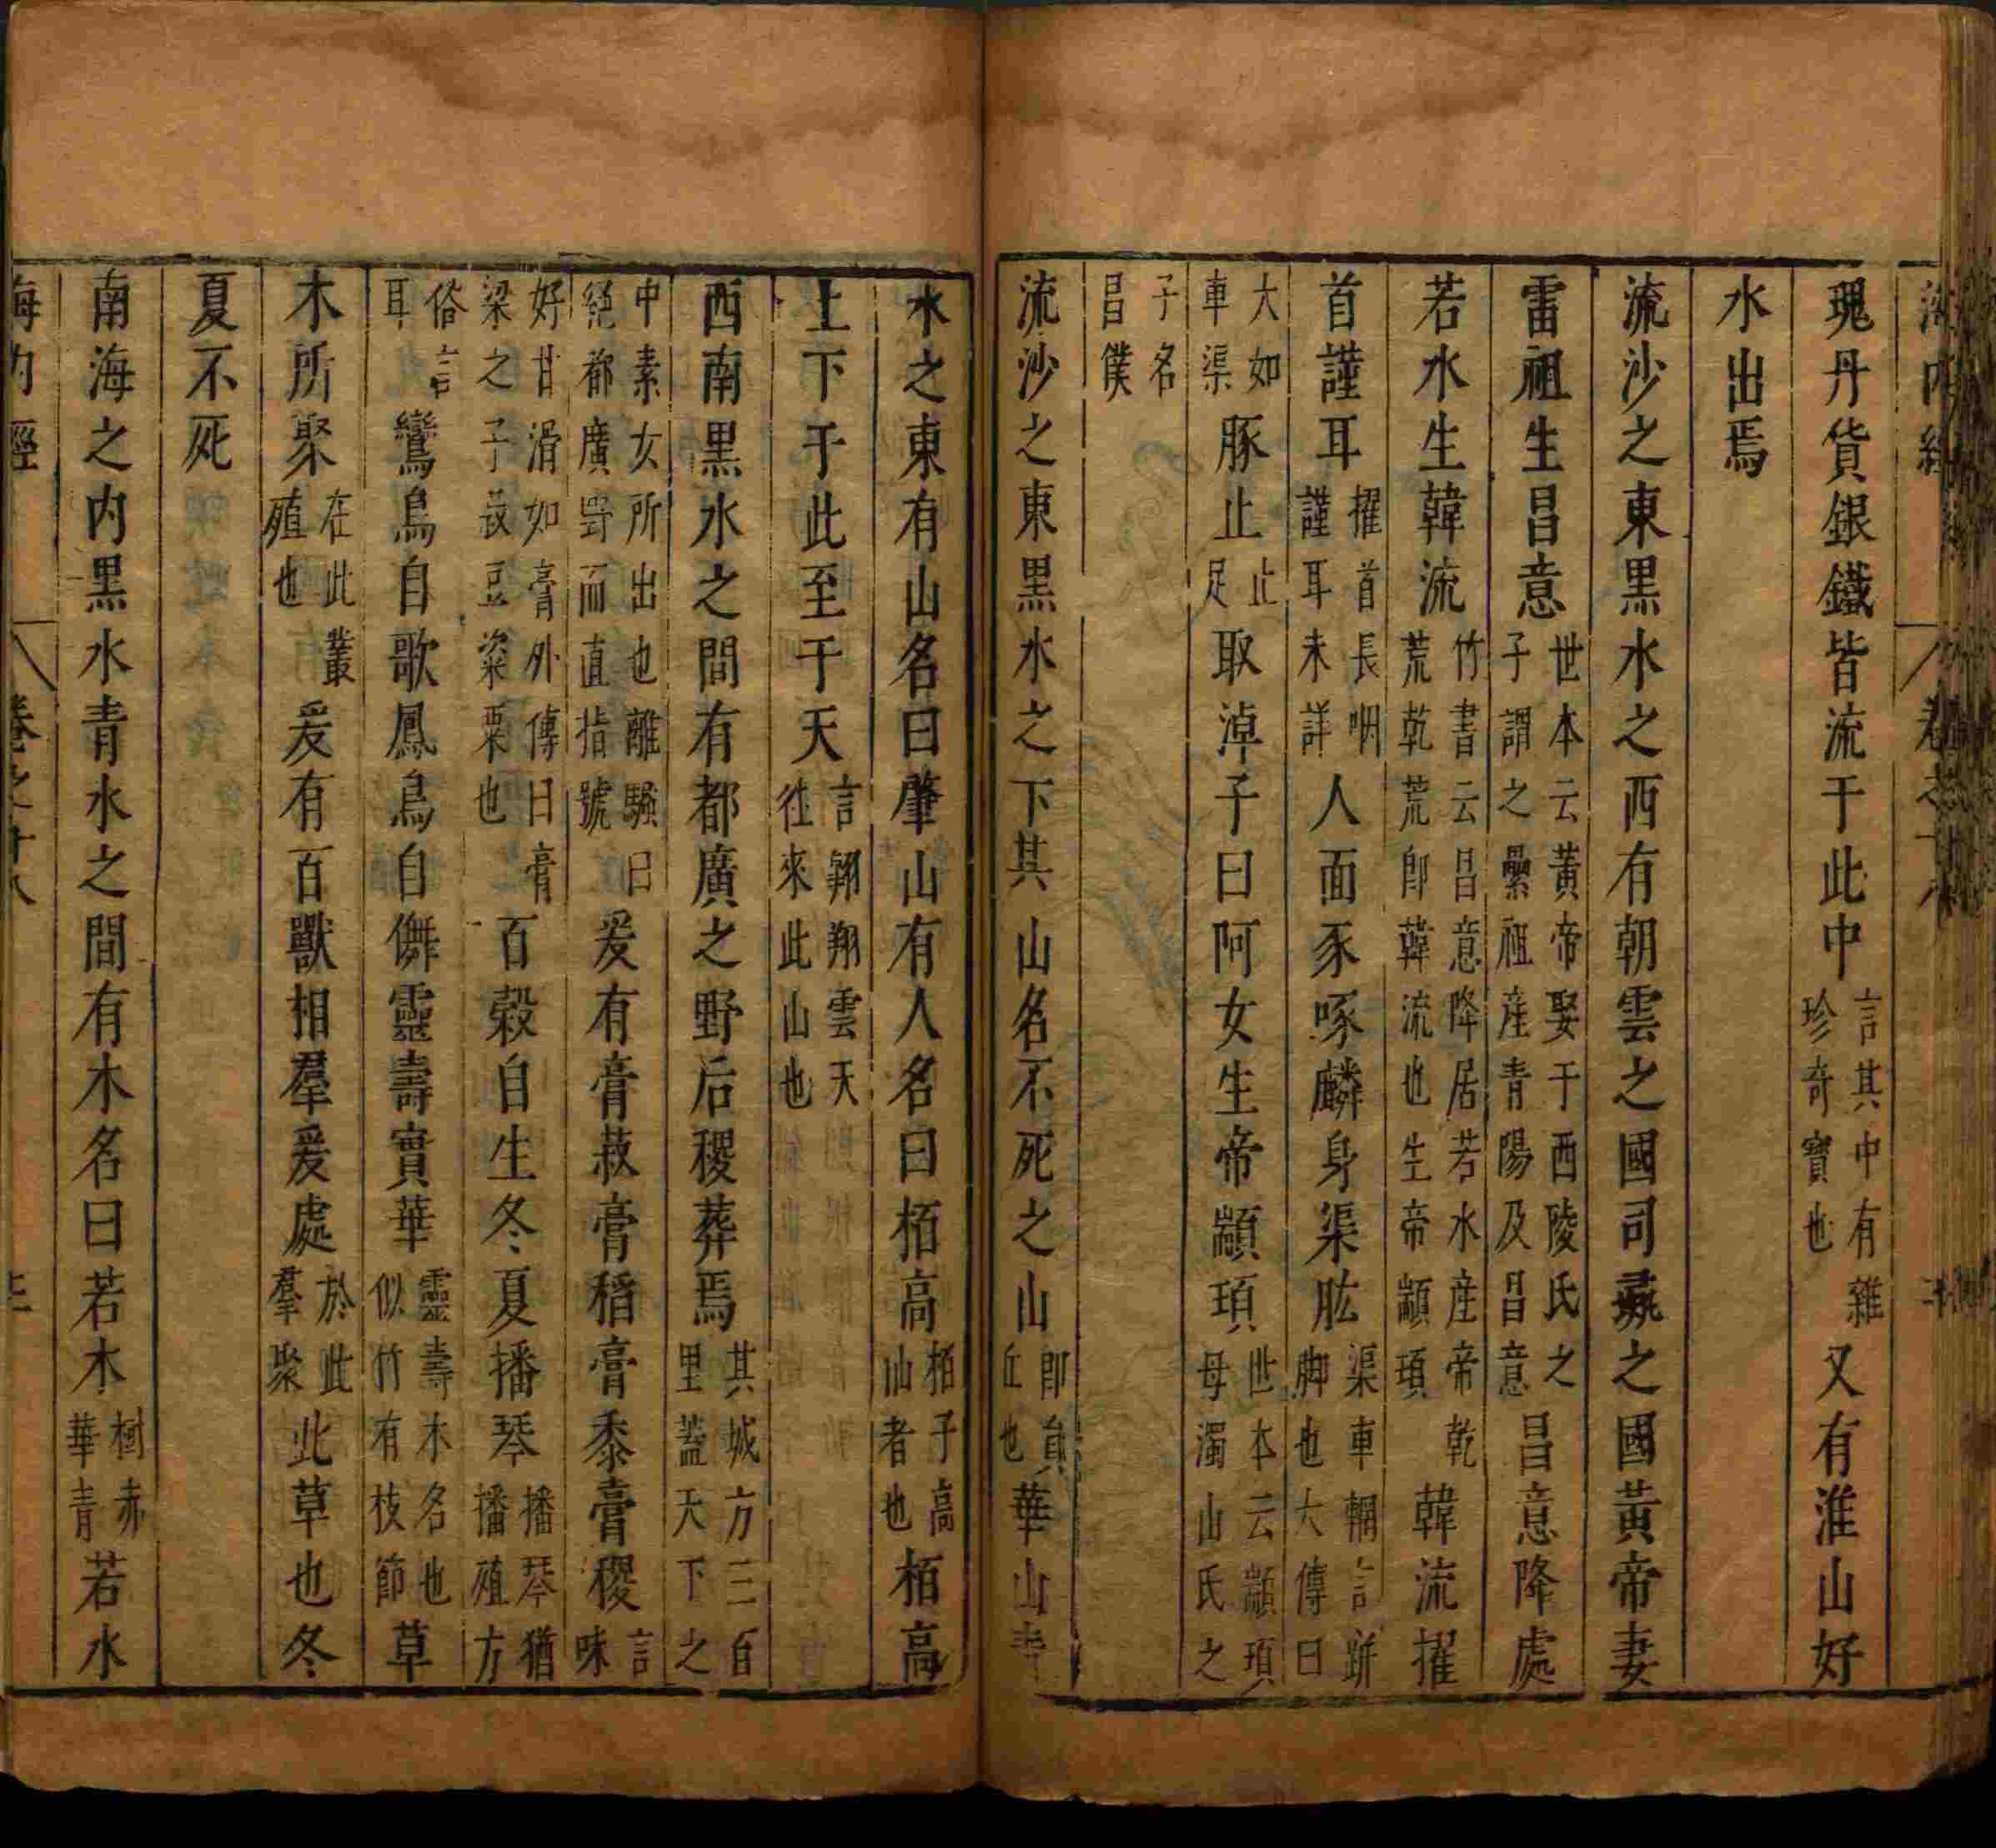 海内經　卷之十八
瑰丹貨銀鐵皆流于此中言其中有雜珍奇寶也又有淮山好
水出焉
流沙之東黑水之西有朝雲之國司彘之國黃帝妻
雷祖生昌意世本云黃帝娶于西陵氏之子謂之纍祖産青陽及昌意昌意降處
若水生韓流竹書云昌意降居若水産帝乾荒乾荒卽韓流也生帝顓頊韓流擢
首謹耳擢首長咽謹耳未詳人面豕喙麟身渠股渠車輞言跰脚也大傳曰
大如車渠豚止止足取淖子曰阿女生帝顓頊世本云顓頊母濁山氏之
子名昌僕
流沙之東黑水之下其山名不死之山卽員丘也華山青
水之東有山名曰肇山有人名曰栢高栢子高仙者也栢高
上下于此至于天言翱翔雲天往來此山也
西南黑水之間有都廣之野后稷葬焉其城方三百里蓋天下之
中素女所出也離騷曰絕都廣野而直指號爰有膏菽膏稻膏黍膏稷言味
好甘滑如膏外傳曰膏粱之子菽豆粢粟也百榖自生冬夏播琴播琴猶播殖方
俗言耳鸞鳥自歌鳳鳥自儛靈壽實華靈壽木名也似竹有枝節草
木所聚在此叢殖也爰有百獸相羣爰處於此羣聚此草也冬
夏不死
南海之内黑水青水之間有木名曰若木樹赤華青若水
海内經　卷之十八